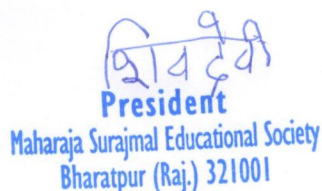 शिवदेवी
President
Maharaja Surajmal Educational Society
Bharatpur (Raj.) 321001